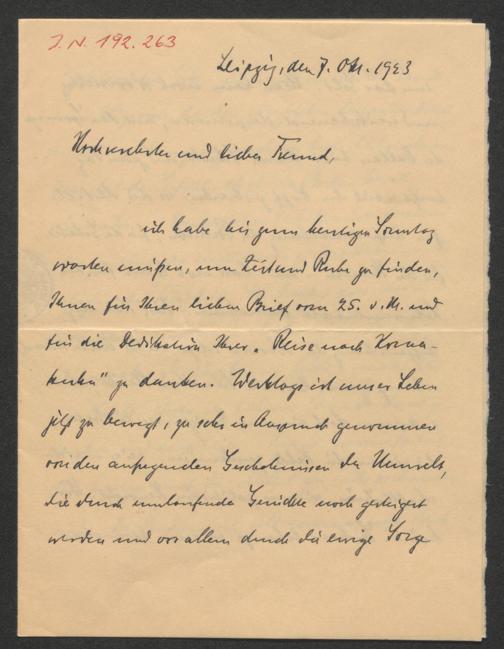 J.N. 192.263
Leipzig, den 7. Okt. 1923
Hochverehrter und lieber Freund,
ich habe bis zum heutigen Sonntag
warten müßen, um Zeit und Ruhe zu finden,
Ihnen für Ihren lieben Brief vom 25. v. M. und
für die Dedikation Ihrer „Reise nach Koma-
kuku" zu danken. Werktags ist unser Leben
jetzt zu bewegt, zu sehr in Anspruch genommen
von den aufregenden Geschehnissen der Umwelt,
die durch umlaufende Gerüchte noch gesteigert
werden und vor allem durch die ewige Sorge